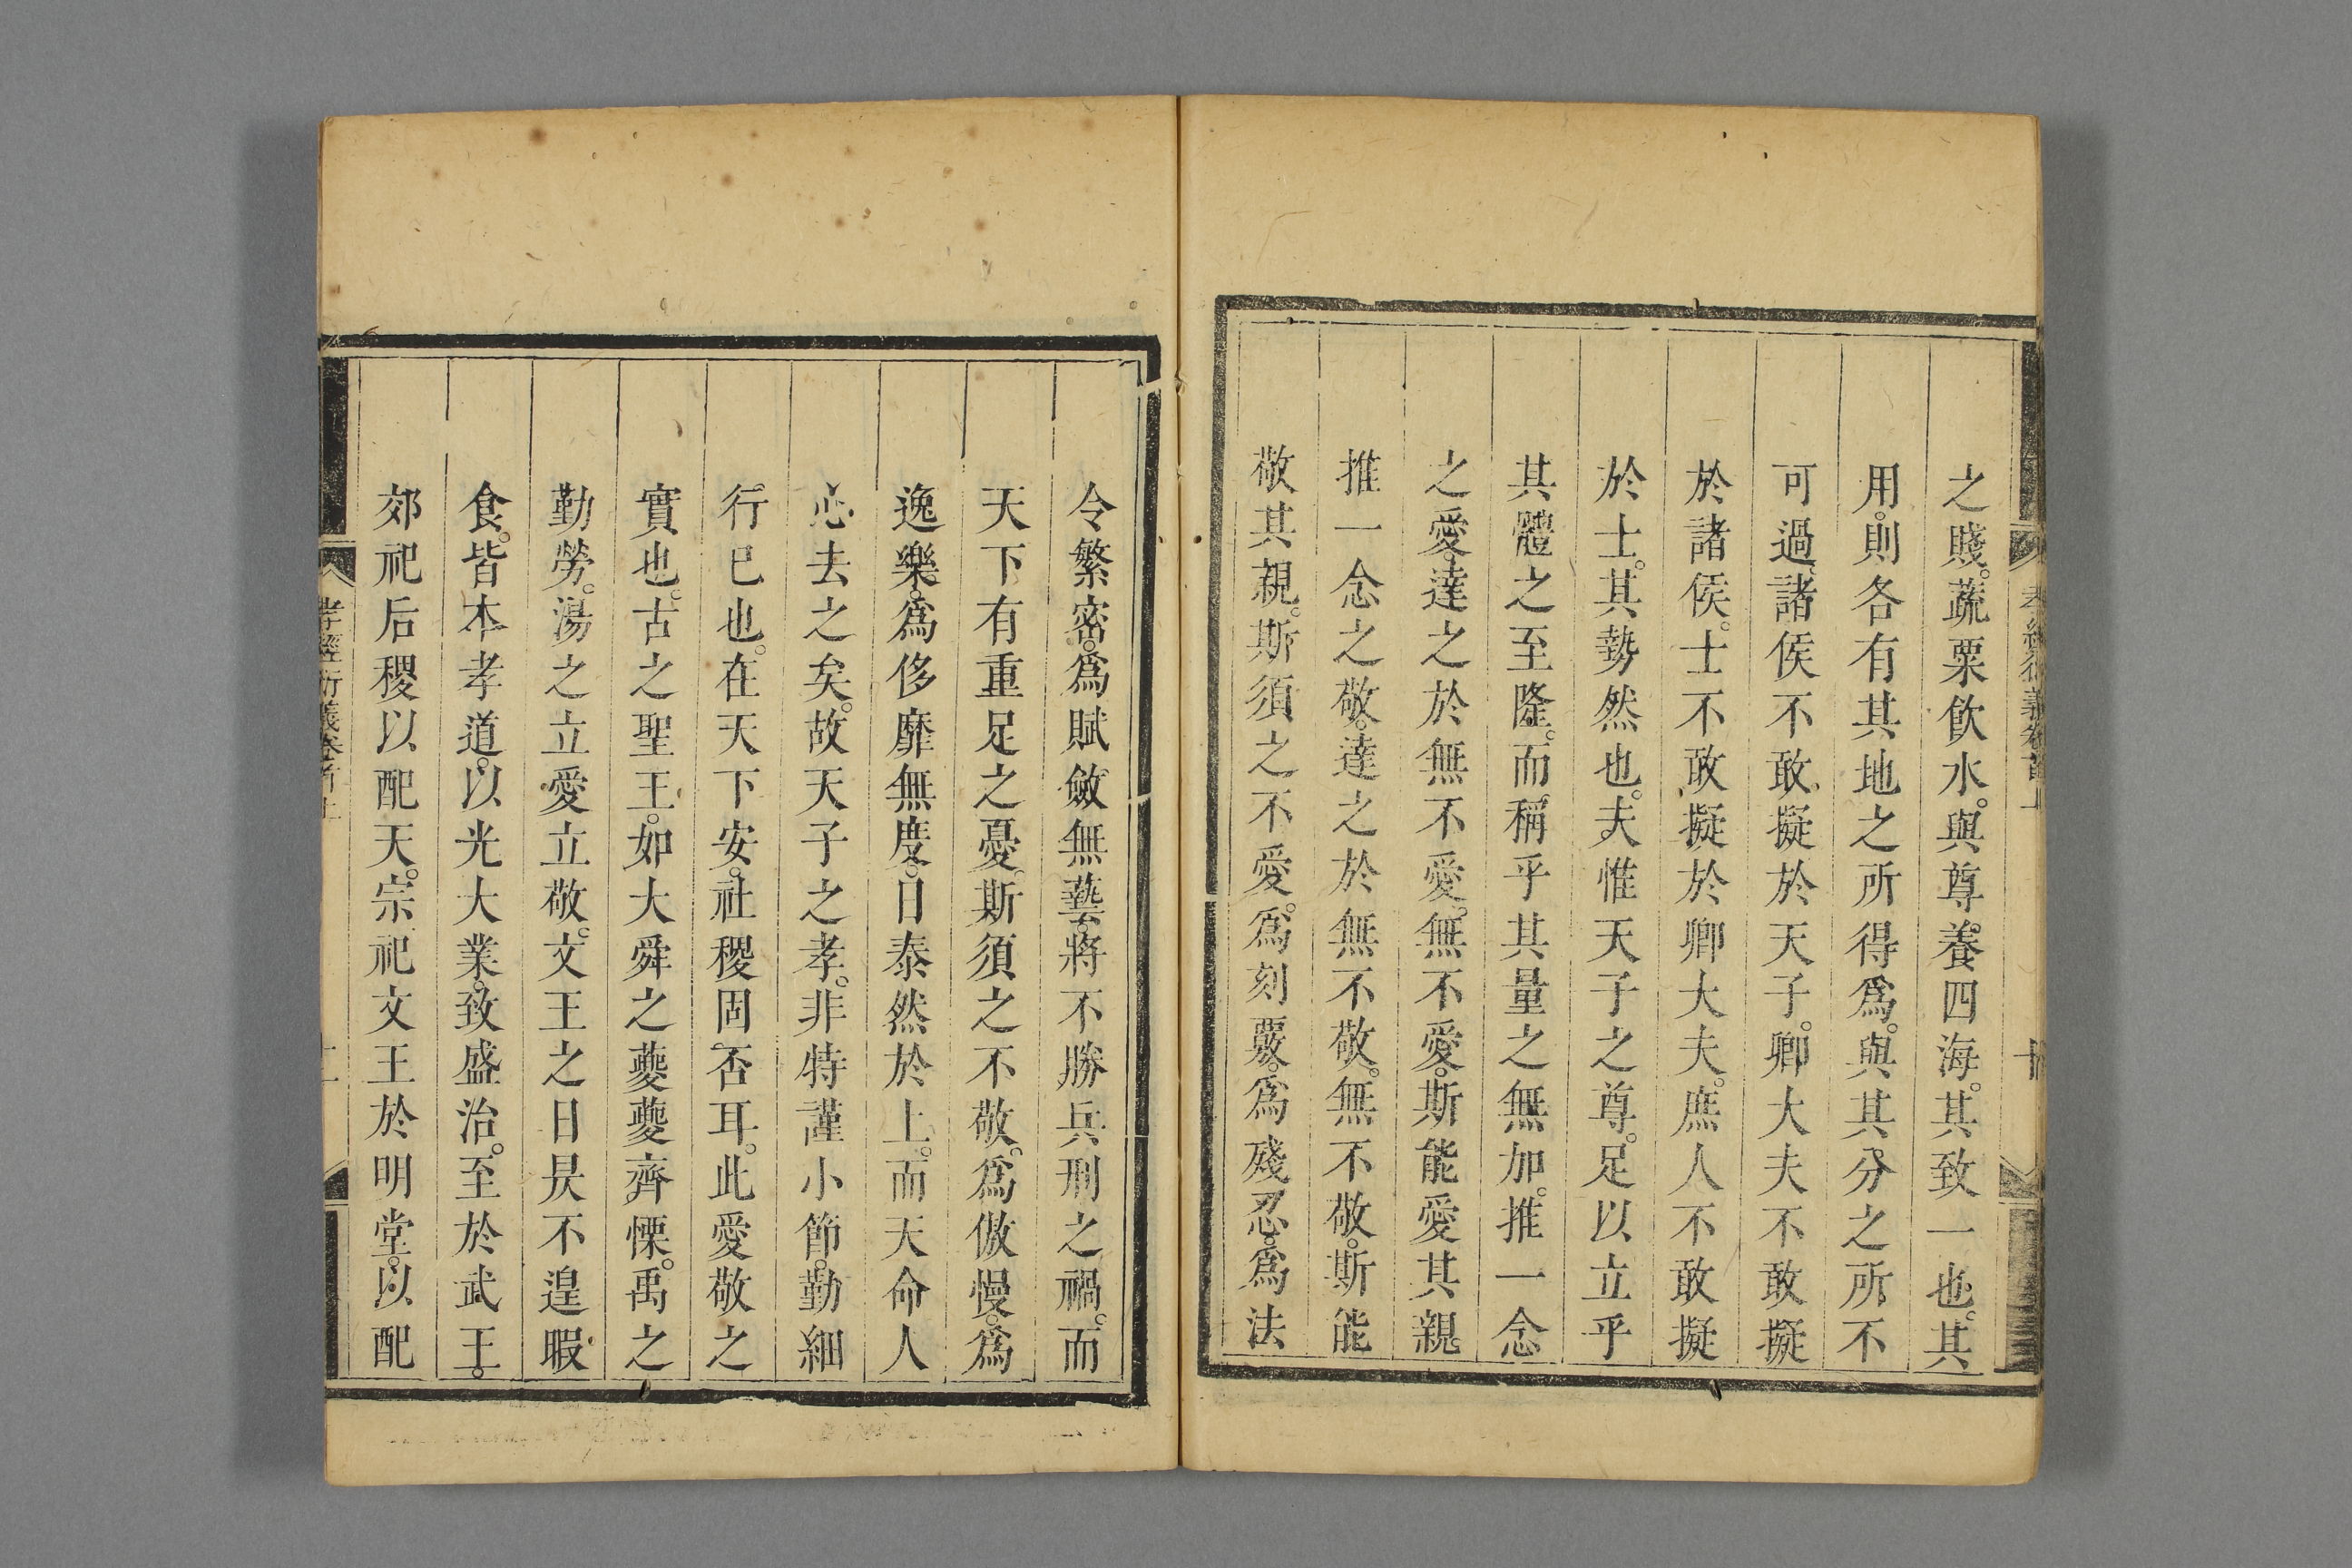 之賤。蔬粟飲水。與尊養四海。其致一也。其
用。則各有其地之所得爲。與其分之所不
可過。諸侯不敢擬於天子。卿大夫不敢擬
於諸侯。士不敢擬於卿大夫。庶人不敢擬
於士。其勢然也。夫惟天子之尊。足以立乎
其體之至隆。而稱乎其量之無加。推一念
之愛。達之於無不愛。無不愛。斯能愛其親。
推一念之敬。達之於無不敬。無不敬。斯能
敬其親。斯須之不愛。爲刻覈。爲殘忍。爲法
令繁密。爲賦斂無藝。將不勝兵刑之禍。而
天下有重足之憂。斯須之不敬。爲傲慢。爲
逸樂。爲侈靡無度。日泰然於上。而天命人
心去之矣。故天子之孝。非特謹小節。勤細
行已也。在天下安。社稷固否耳。此愛敬之
實也。古之聖王。如大舜之夔夔齊慄。禹之
勤勞。湯之立愛立敬。文王之日昃不遑暇
食。皆本孝道。以光大業。致盛治。至於武王。
郊祀后稷以配天。宗祀文王於明堂。以配
孝經衍義卷首上